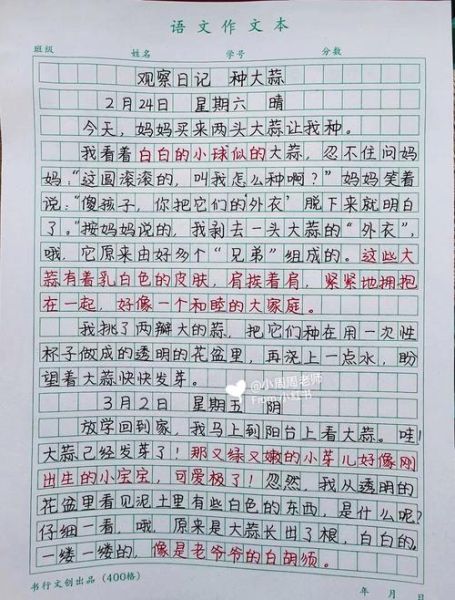 语文作文本
班级 姓名 学号 分数
观察日记 种大蒜
2月24日 星期六 晴
今天，妈妈买来两头大蒜让我种。
我看着白白的小球似的大蒜，忍不住问妈
妈：“这圆滚滚的，叫我怎么种啊？”妈妈笑着
说：“傻孩子，你把它们的‘外衣’脱下来就明白
了。”按妈妈说的，我剥去一头大蒜的“外衣”，
哦，它原来由好多个“兄弟”组成的。这些大
蒜有着乳白色的皮肤，肩挨着肩，紧紧地拥抱
在一起，好像一个和睦的大家庭。
我挑了两瓣大的蒜，把它们种在用一次性
杯子做成的透明的花盆里，再浇上一点水，盼
望着大蒜快快发芽。
@小周周老师
小红书
3月2日 星期五 阴
放学回到家，我马上到阳台上看大蒜。哇！
大蒜已经发芽了！那又绿又嫩的小芽儿好像刚
出生的小宝宝，可爱极了！忽然，我从透明的
花盆里看见泥土里有些白色的东西，是什么呢？
仔细一看，哦，原来是大蒜长出了根，白白的，
一缕一缕的，像是老爷爷的白胡须。
书行文创出品（400格） 年 月 日